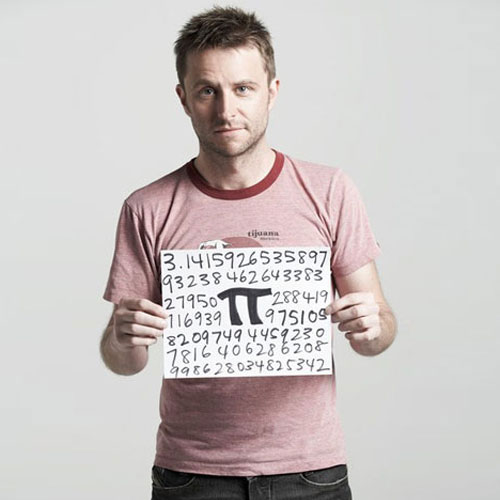 tijuana
3.1415926535897
93238462643383
27950 π 288419
716939 975105
8209749 4459230
7816406286208
99862803482534​2